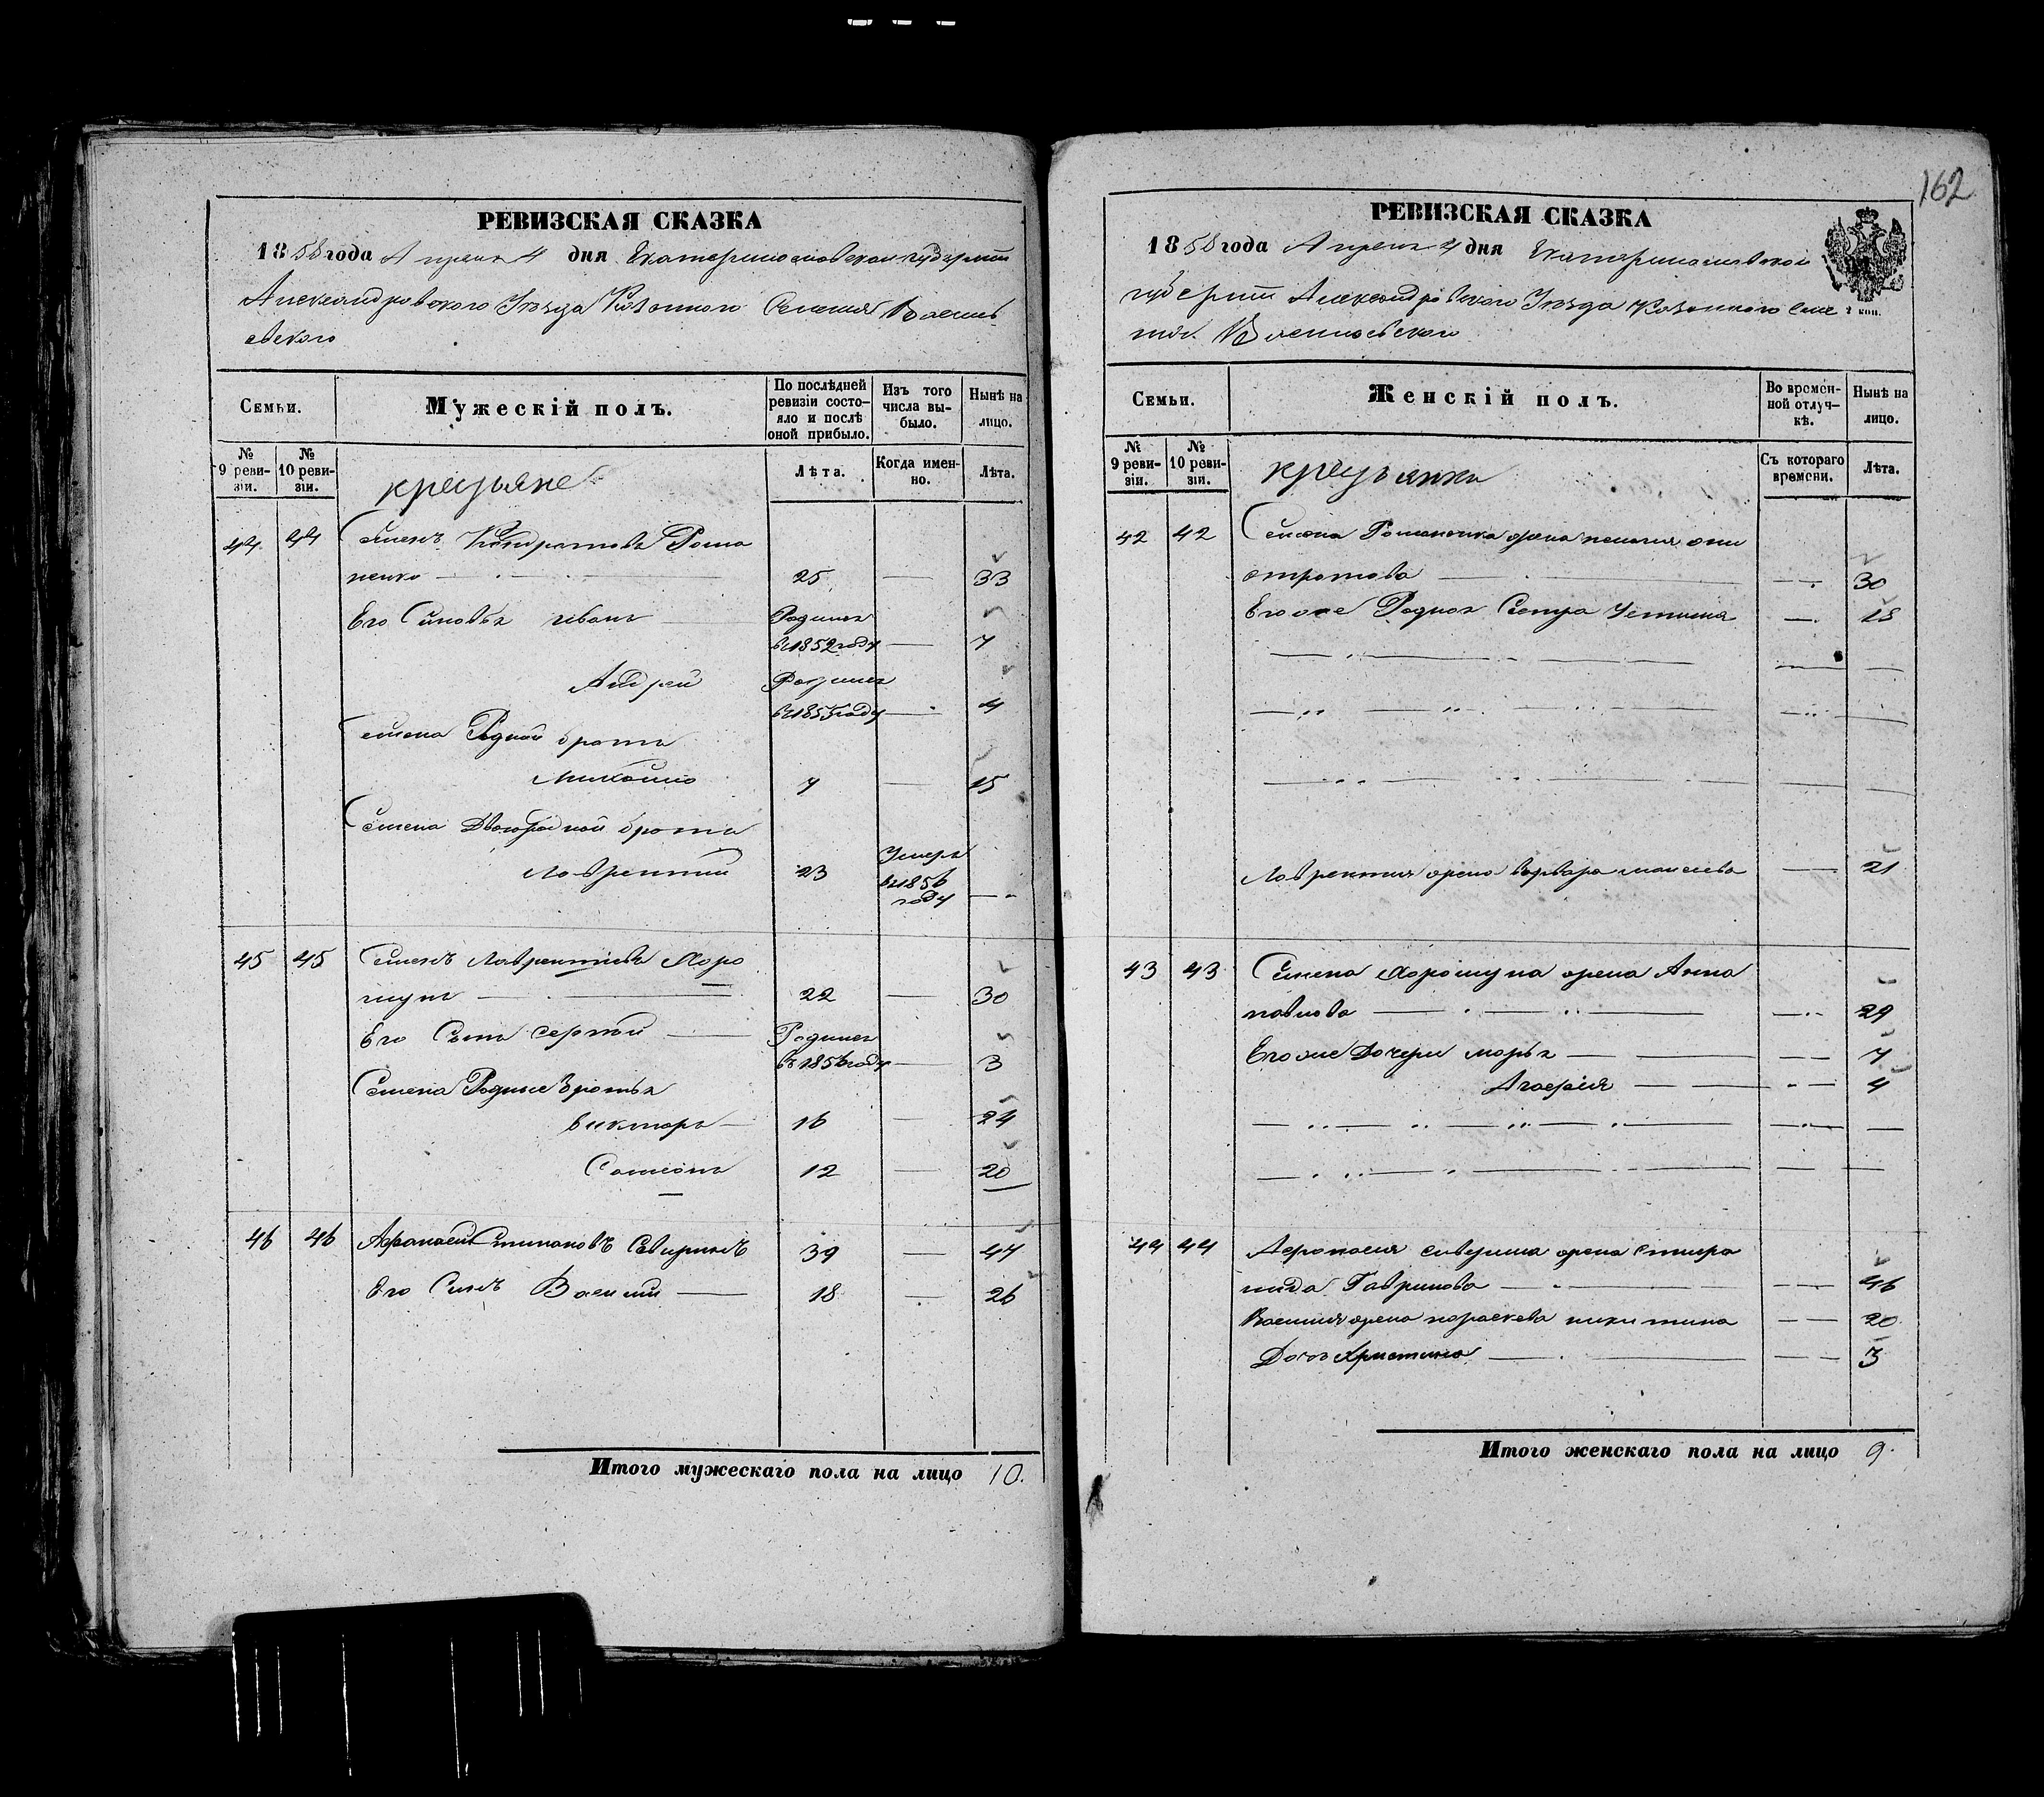 РЕВИЗСКАЯ СКАЗКА
1858 года Апреля 4 дня Екатеринославской губернии
Александровского Уезда Казенного Селения Василь-
евского
Семьи.
Мужескій полъ.
По послѣдней ревизіи состо-яло и послѣ оной прибыло.
Изъ того числа вы-было.
Нынѣ на лицо.
№ 9 реви-зіи.
№ 10 реви-зіи.
крестьяне
Лѣта.
Когда имен-но.
Лѣта.
44 44 Семенъ Кондратовъ Рома
ненко 25 33
Его Сыновья иванъ Родился
въ 1852 году 7
Андрей Родился
въ 1855 году 4
Семена Родной братъ
Михайло 7 15
Семена Двоюродной братъ
Лаврентий 23 Умеръ
въ 1856
году
45 45 Семенъ Лаврентиевъ Хоро
шунъ 22 30
Его Сынъ Сергей Родился
въ 1856 году 3
Семена Родные братья
викторъ 16 24
Самсонъ 12 20
46 46 Афанасий Степановъ Северинъ 39 47
Его Сынъ Василий 18 26
Итого мужескаго пола на лицо 10.
162
РЕВИЗСКАЯ СКАЗКА
1858 года Апреля 4 дня Екатеринославской
губернии Александровского Уезда Казенного Селе
ния Васильевского
2 коп.
Семьи.
Женскій полъ.
Во времен-ной отлуч-кѣ.
Нынѣ на лицо.
№ 9 реви-зіи.
№ 10 реви-зіи.
крестьянки
Съ котораго времени.
Лѣта.
42 42 Семена Романенка жена пелагия они
стратова 30
Его же Родная Сестра Устиния 18
Лаврентия жена варвара моисеева 21
43 43 Семена Хорошуна жена Анна
павлова 29
Его же Дочери марья 7
Агафия 4
44 44 Афанасия северина жена спири
нида Гаврилова 46
Василия жена параскева никитина 20
Дочь Христина 3
Итого женскаго пола на лицо 9.